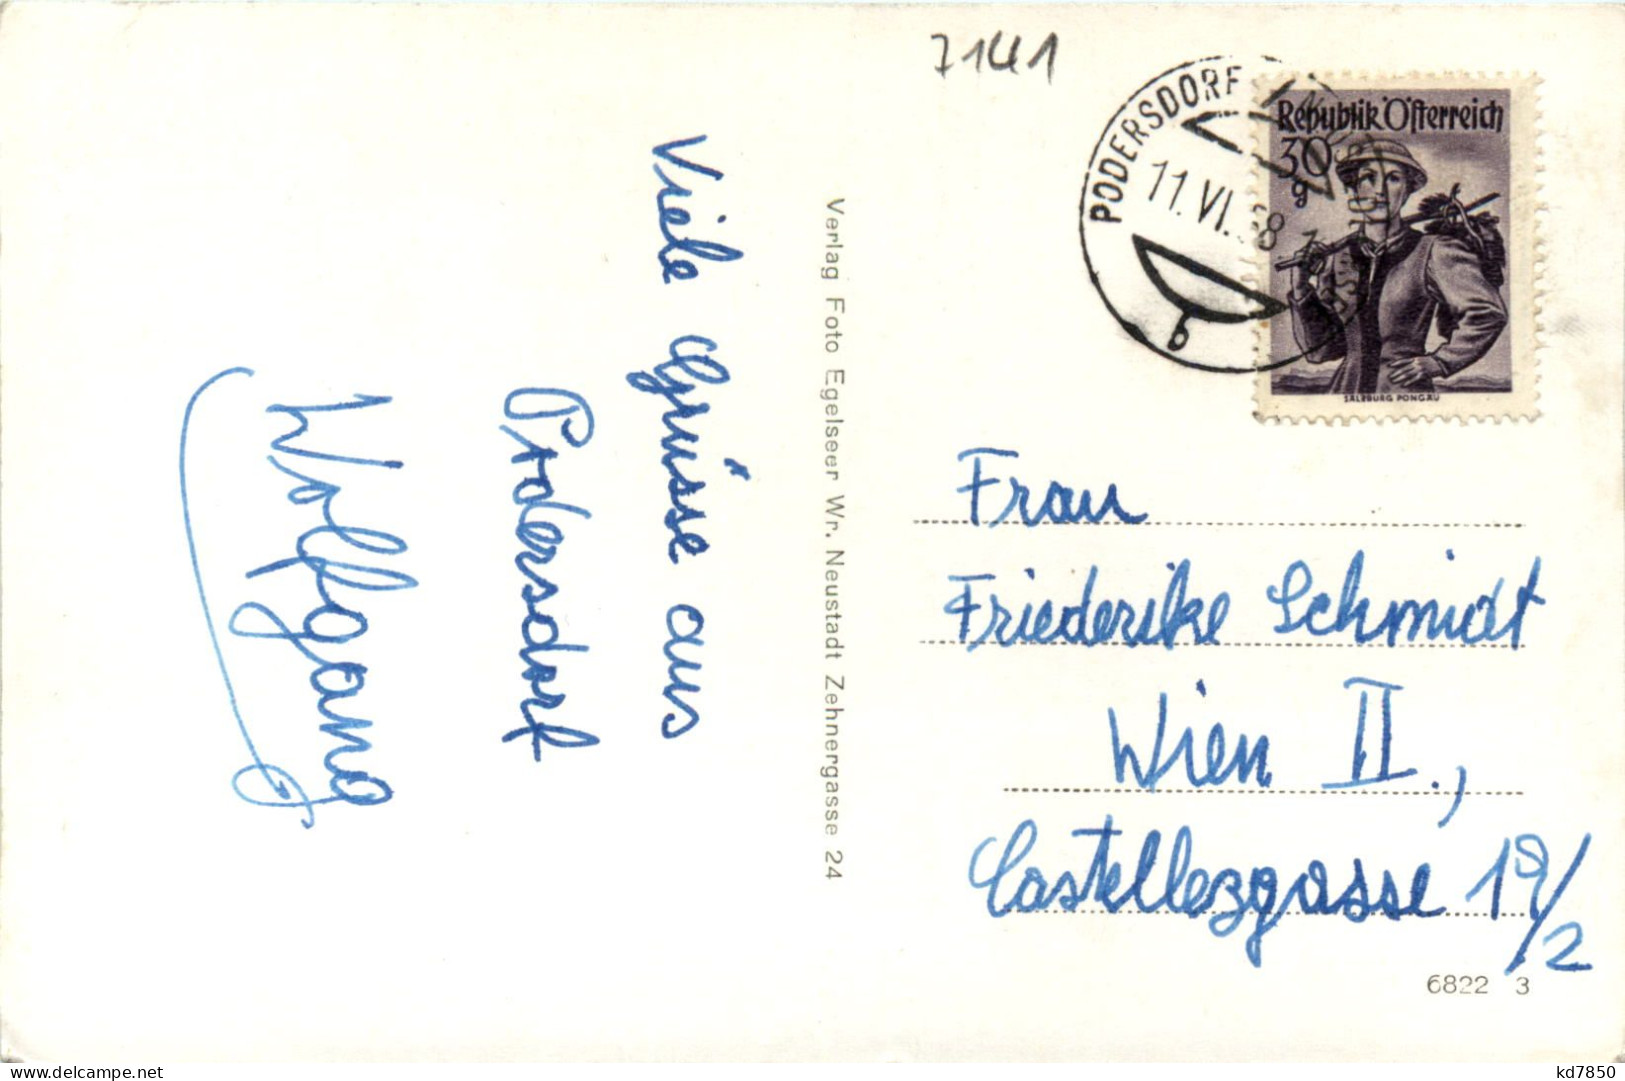 7141
PODERSDORF
11.VI. 8
b
Republik Österreich
30
g
SALZBURG PONGAU
Viele Grüsse aus
Podersdorf
Wolfgang
Verlag Foto Egelseer Wr. Neustadt Zehnergasse 24
Frau
Friederike Schmidt
Wien II.,
Castellezgasse 19/2
6822 3
kd7850